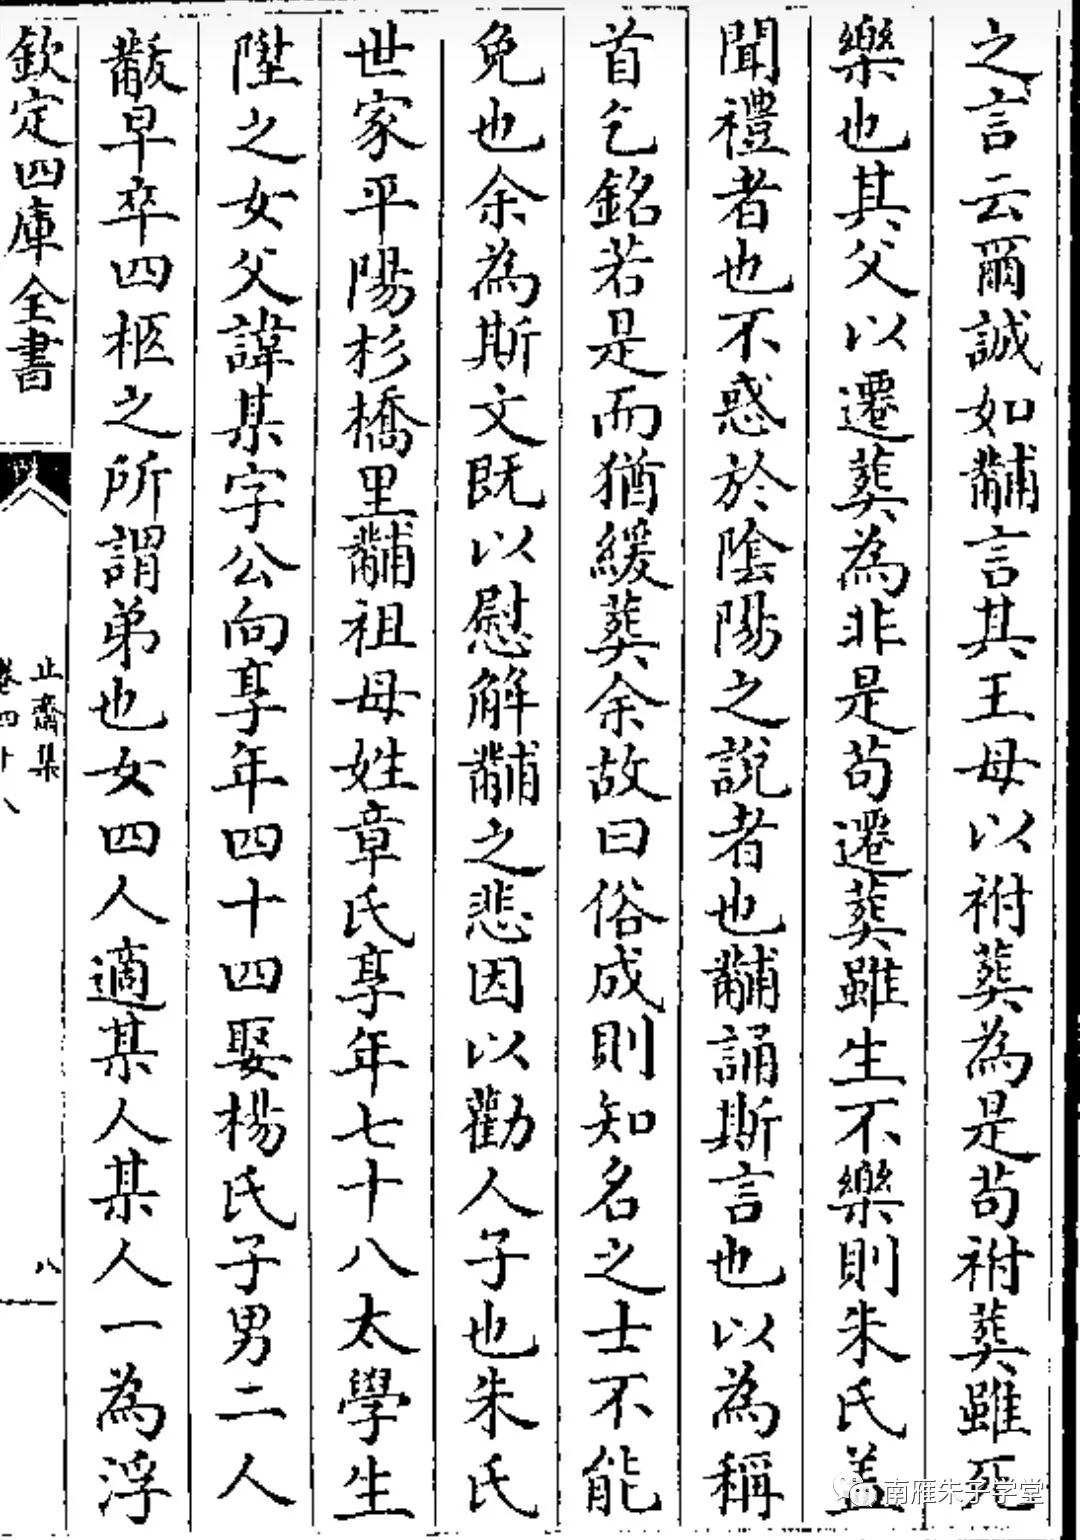 之言云爾誠如黼言其王母以祔葬為是苟祔葬雖死
樂也其父以遷葬為非是苟遷葬雖生不樂則朱氏盖
聞禮者也不惑於陰陽之說者也黼誦斯言也以為稱
首乞銘若是而猶緩葬余故曰俗成則知名之士不能
免也余為斯文既以慰解黼之悲因以勸人子也朱氏
世家平陽杉橋里黼祖母姓章氏享年七十八太學生
陞之女父諱某字公向享年四十四娶楊氏子男二人
黻早卒四柩之所謂弟也女四人適某人某人一為浮
欽定四庫全書
止齋集
卷四十八
八
南雁朱子学堂